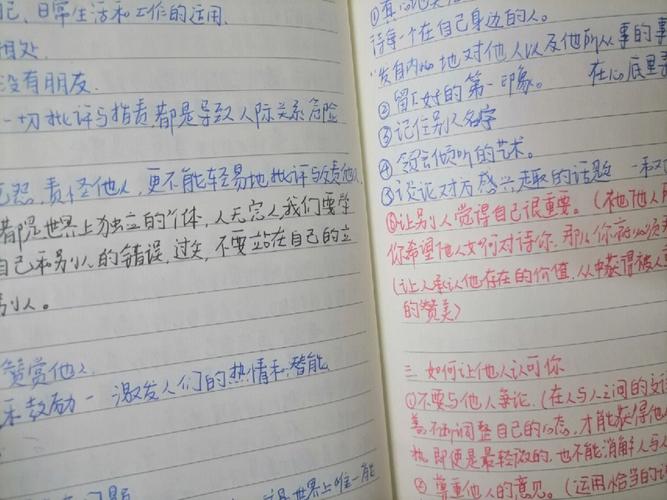 日常生活和工作的运用.
相处.
没有朋友.
一切批评与指责,都是导致人际关系危险
责怪他人,更不能轻易地批评与
都是世界上独立的个体,人无完人,我们要学
自己和别人的错误,过失,不要立在自己的立
别人。
赞赏他人
鼓励一 激发人们的热情和潜能
世界上唯一能
待每一个在自己身边的人。
发自内心地对他人以及他所从事的事
在心底里
②留下好的第一印象。
③记住别人名字
④领会倾听的艺术。
⑤谈论对方感兴趣的话题
⑥让别人觉得自己很重要。(
你希望他人如何对待你,那么你
(让人承认他存在的价值,从中获得被人
的赞美)
三.如何让他人认可你
①不要与他人争论.(在人与人之间的交
善不断调整自己的心态,才能获得他
执,即使是最轻微的,也不能消解人与人
②尊重他人的意见。(运用恰当的